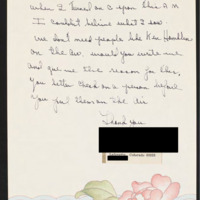 when I turned on C upon this A M
I couldn't believe what I saw
we don't need people like Ken Hamblin
on the Air. would you write me
and give me the reason for this,
You better check on a person before
You put them on the air
Thank you
Colorado